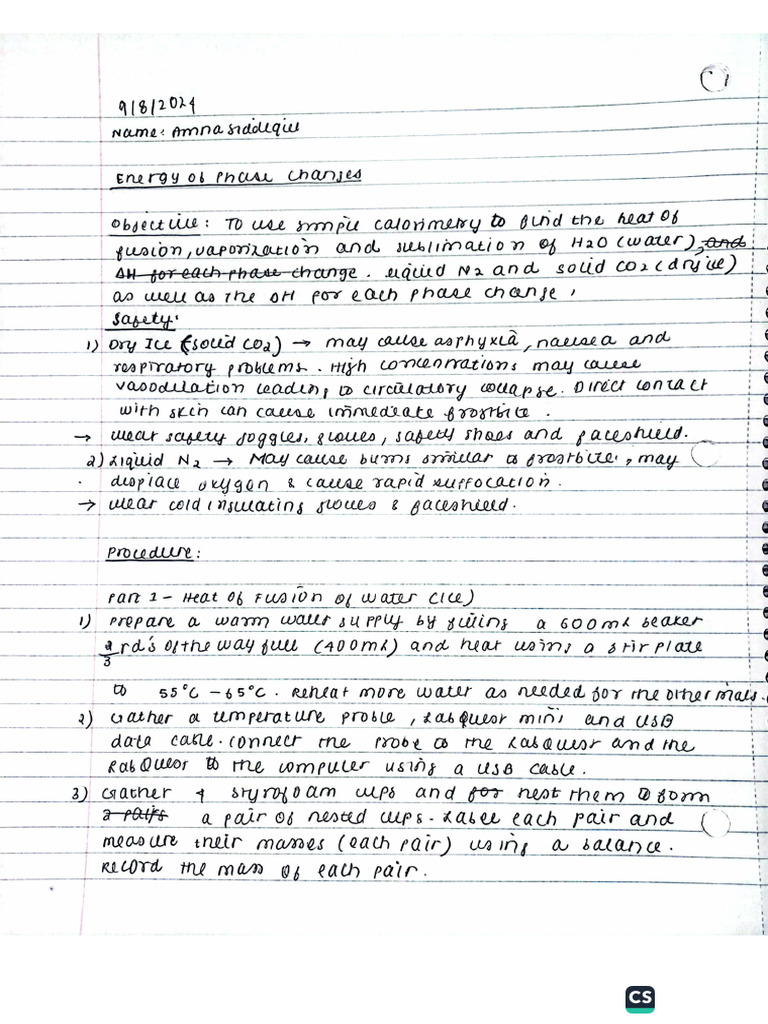 9/8/2024
Name: Amna Siddiquie
Energy of Phase Changes
Objective: To use simple calorimetry to find the heat of
fusion, vaporization and sublimation of H2O (water), and
ΔH for each phase change. Liquid N2 and solid CO2 (dry ice)
as well as the ΔH for each phase change.
Safety:
1) Dry Ice (solid CO2) → may cause asphyxia, nausea and
respiratory problems. High concentrations may cause
vasodilation leading to circulatory collapse. Direct contact
with skin can cause immediate frostbite.
→ wear safety goggles, gloves, safety shoes and faceshield.
2) Liquid N2 → May cause burns similar to frostbite, may
displace oxygen & cause rapid suffocation.
→ wear cold insulating gloves & faceshield.
Procedure:
Part 1 - Heat of Fusion of Water (Ice)
1) Prepare a warm water supply by filling a 600mL beaker
2/3 rd's of the way full (400mL) and heat using a stir plate
to 55°C - 65°C. Reheat more water as needed for the other trials.
2) Gather a temperature probe, LabQuest mini and USB
data cable. Connect the probe to the LabQuest and the
LabQuest to the computer using a USB cable.
3) Gather 4 styrofoam cups and for nest them to form
2 pairs a pair of nested cups. Label each pair and
measure their masses (each pair) using a balance.
Record the mass of each pair.
CS